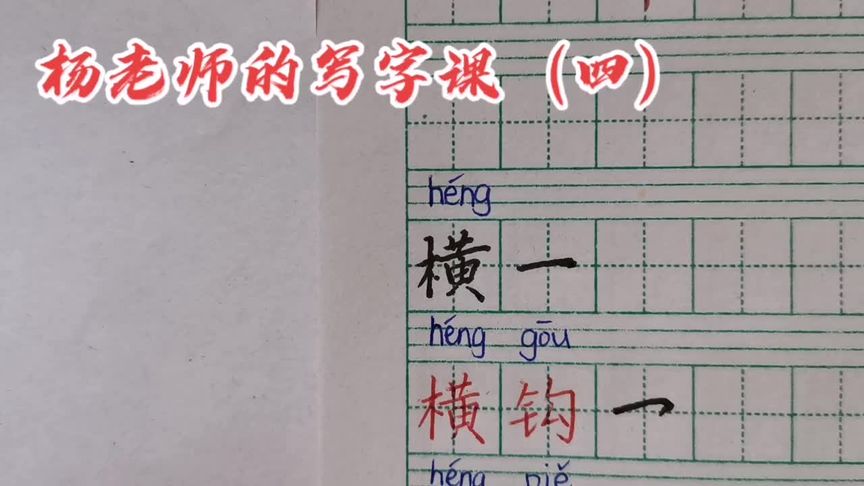 杨老师的写字课（四）
héng
横 一
héng gōu
横 钩 ㇖
héng piě